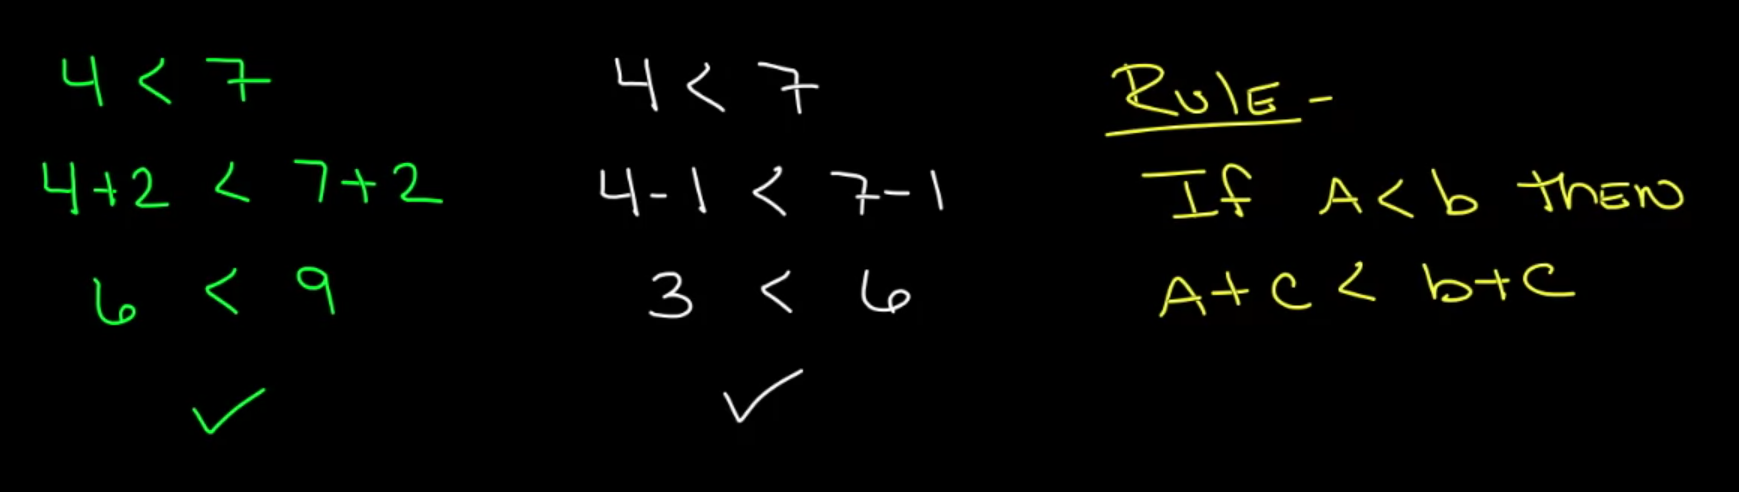 4 < 7
4+2 < 7+2
6 < 9
✓
4 < 7
4-1 < 7-1
3 < 6
✓
RulE -
If A < b thEN
A + C < b + C